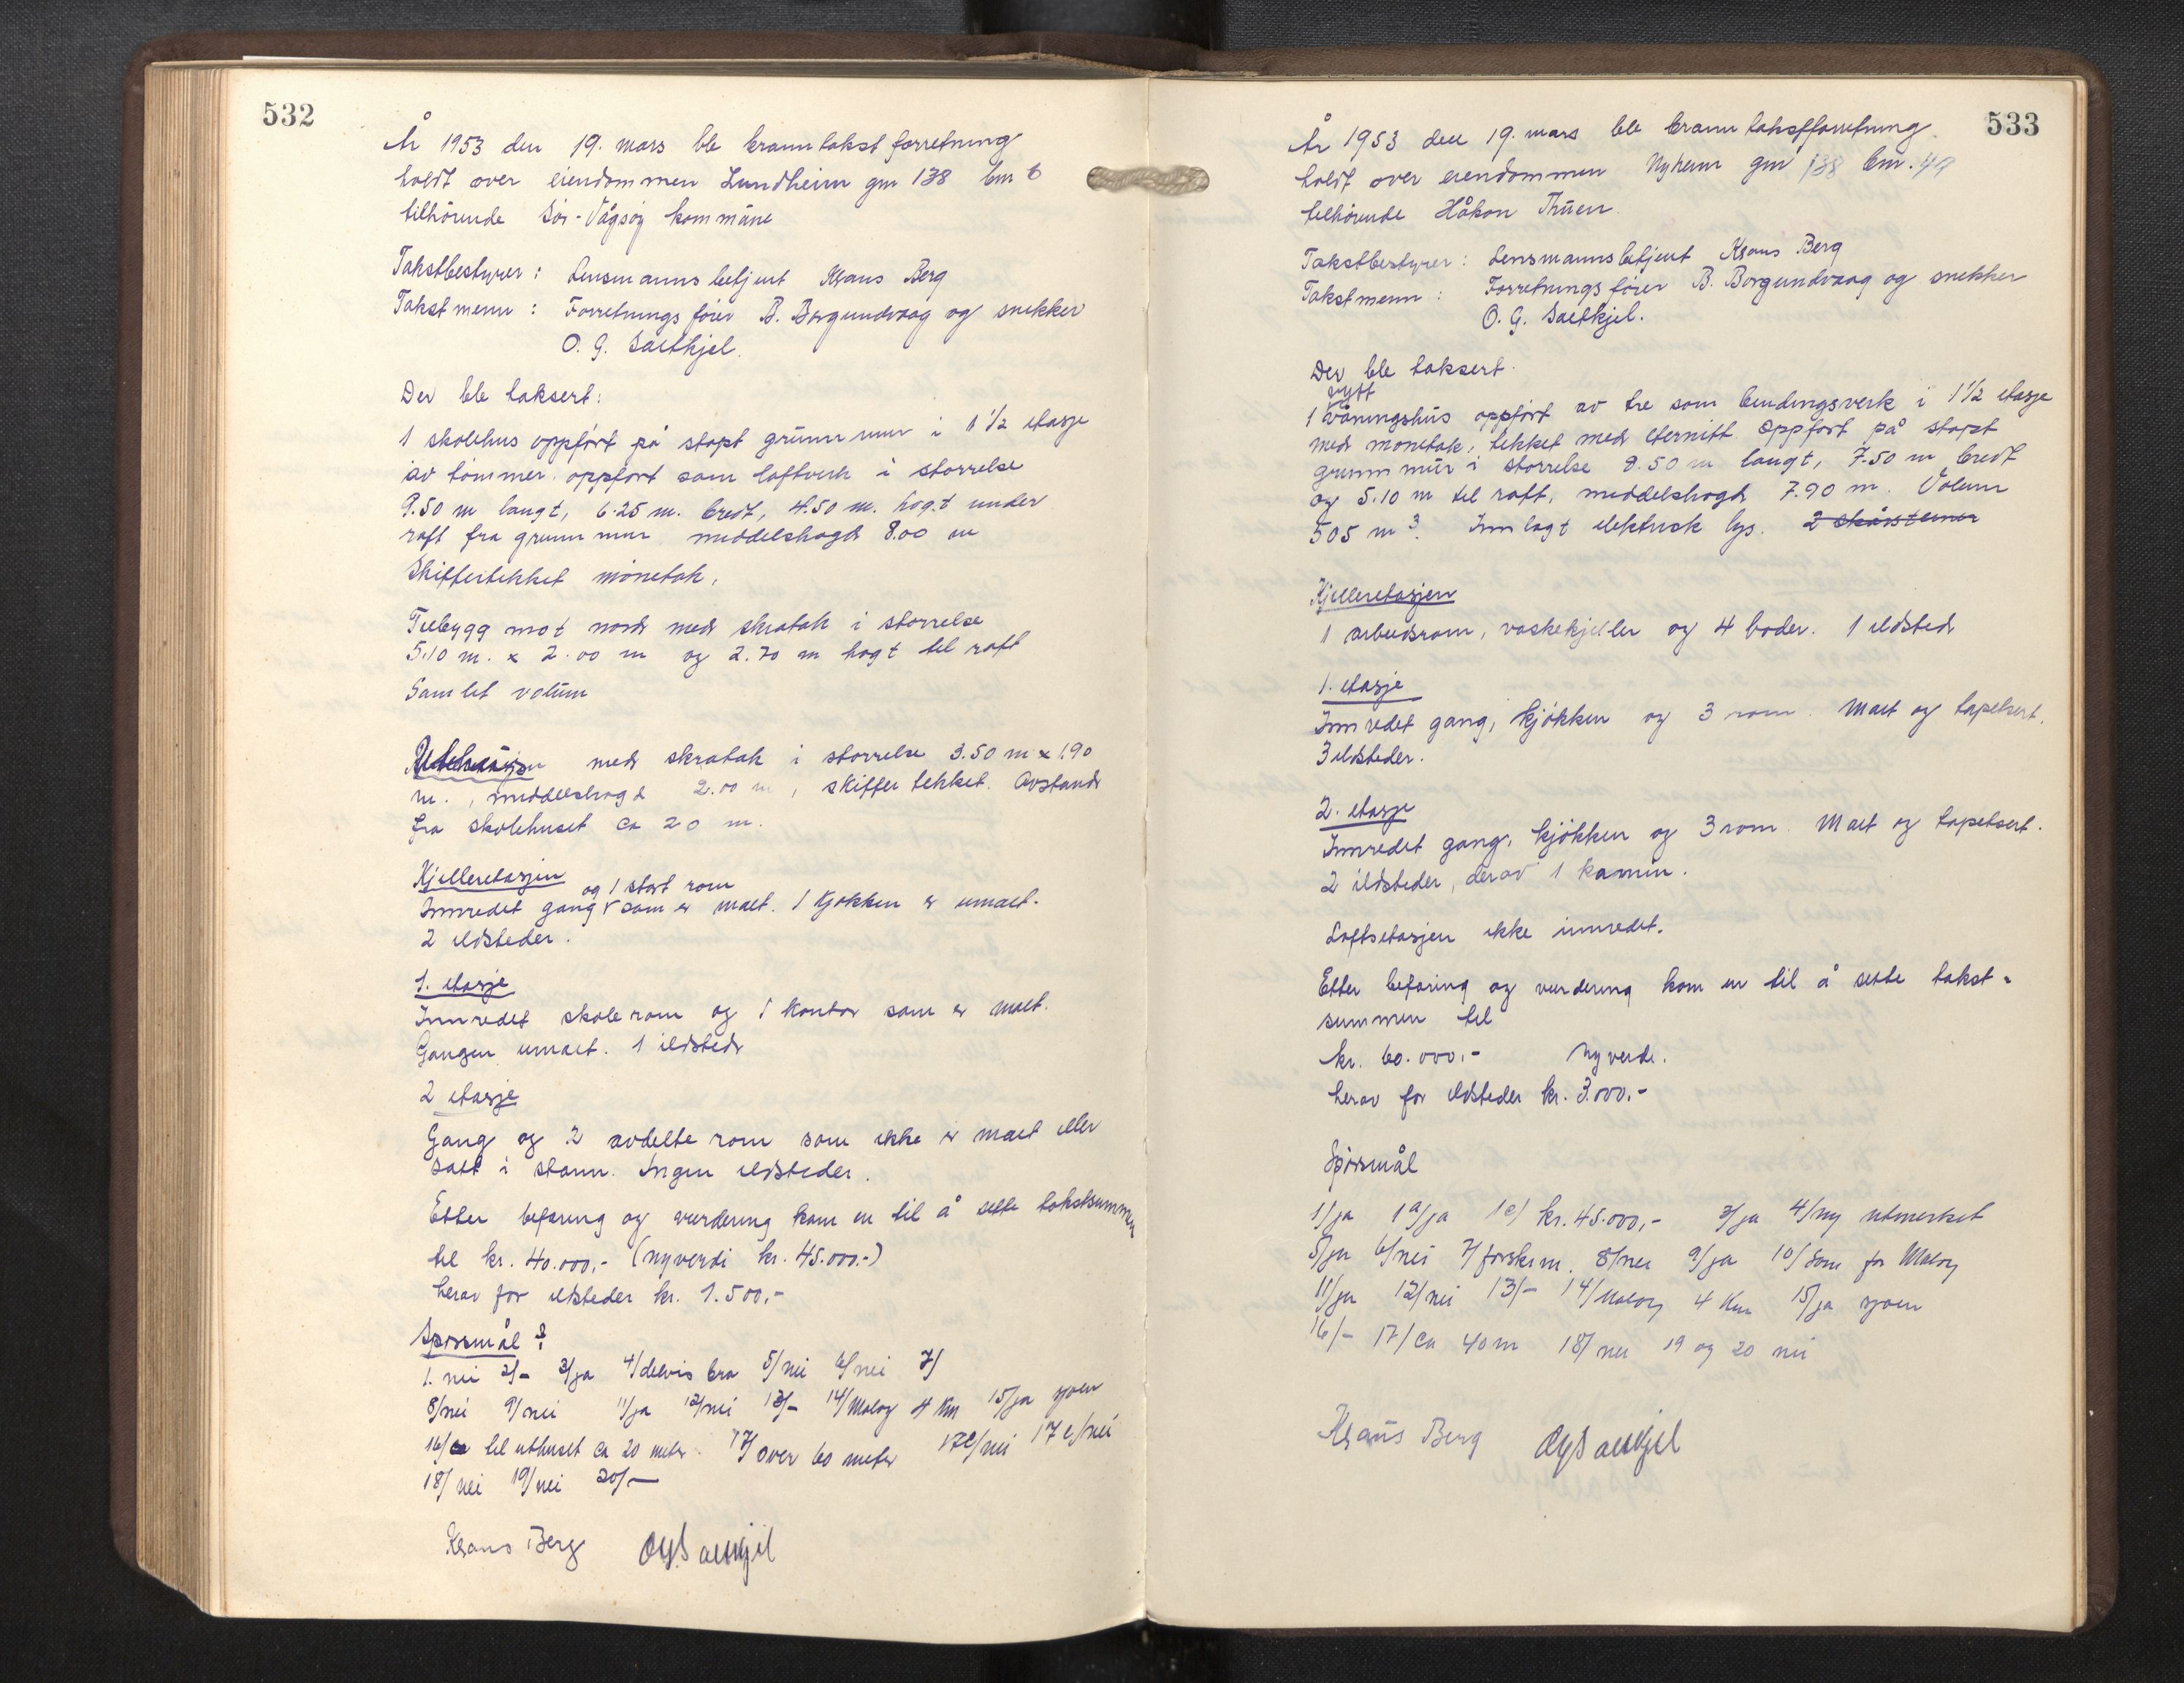 532
År 1953 den 19. mars ble branntakst forretning
holdt over eiendommen Lundheim gnr 138 bnr 6
tilhörende Sör-Vågsöy kommune
Takstbestyrer: Lensmannsbetjent Klaus Berg
Takstmenn: Forretningsförer B. Borgundvaag og snekker
O. G. Saltkjel.
Der ble taksert:
1 skolehus oppfört på stöpt grunnmur i 1 1/2 etasje
av tömmer oppfört som laftverk i störrelse
9.50 m langt, 6.25 m. bredt, 4.50 m. högt under
raft fra grunnmur middelshögd 8.00 m
Skiffertekket mönetak,
Tilbygg mot nord med skråtak i störrelse
5.10 m. x 2.00 m og 2.70 m högt til raft
Samlet volum
med skråtak i störrelse 3.50 m x 1.90
m., middelshögd 2.00 m, skiffertekket. Avstand
fra skolehuset ca 20 m.
Kjelleretasjen
og 1 stort rom
Innredet gang som er malt. 1 kjökken er umalt.
2 ildsteder.
1. etasje
Innredet skolerom og 1 kontor som er malt.
Gangen umalt. 1 ildsted
2 etasje
Gang og 2 avdelte rom som ikke er malt eller
satt i stann. Ingen ildsteder.
Etter befaring og vurdering kom en til å sette takstsummen
til kr. 40.000,- (nyverdi kr. 45.000.-)
herav for ildsteder kr. 1.500,-
Spörsmål:
1. nei 2/- 3/ja 4/delvis bra 5/nei 6/nei 7/
8/nei 9/nei 11/ja 12/nei 13/- 14/Målöy 4 km 15/ja sjöen
16/ til uthuset ca 20 meter 17/over 60 meter 17c/nei 17e/nei
18/nei 19/nei 20/-
Klaus Berg OGSaltkjel
533
År 1953 den 19. mars ble branntakstforretning
holdt over eiendommen Nyheim gnr 138 bnr. 49
tilhörende Håkon Thuen.
Takstbestyrer: Lensmannsbetjent Klaus Berg
Takstmenn: Forretningsförer B. Borgundvaag og snekker
O. G. Saltkjel.
Der ble taksert.
nytt
1 våningshus oppfört av tre som bindingsverk i 1 1/2 etasje
med mönetak, tekket med eternitt. Oppfört på stöpt
grunnmur i störrelse 8.50 m langt, 7.50 m bredt
og 5.10 m til raft, middelshögd 7.90 m. Volum
505 m3. Innlagt elektrisk lys. 2 skårsteiner
Kjelleretasjen
1 arbeidsrom, vaskekjeller og 4 boder. 1 ildsted
1. etasje
Innredet gang, kjökken og 3 rom. Malt og tapetsert.
3 ildsteder.
2. etasje
Innredet gang, kjökken og 3 rom. Malt og tapetsert.
2 ildsteder, derav 1 kamin.
Loftsetasjen ikke innredet.
Etter befaring og vurdering kom en til å sette takst-
summen til
kr. 60.000.- nyverdi.
herav for ildsteder kr. 3.000.-
Spörsmål
1/ja 1a/ja 1c/ kr. 45.000,- 3/ja 4/ny utmerket
5/ja 6/nei 7/forskr.m. 8/nei 9/ja 10/Som for Målöy
11/ja 12/nei 13/- 14/Målöy 4 km 15/ja sjöen
16/- 17/ca 40 m 18/nei 19 og 20 nei
Klaus Berg OGSaltkjel